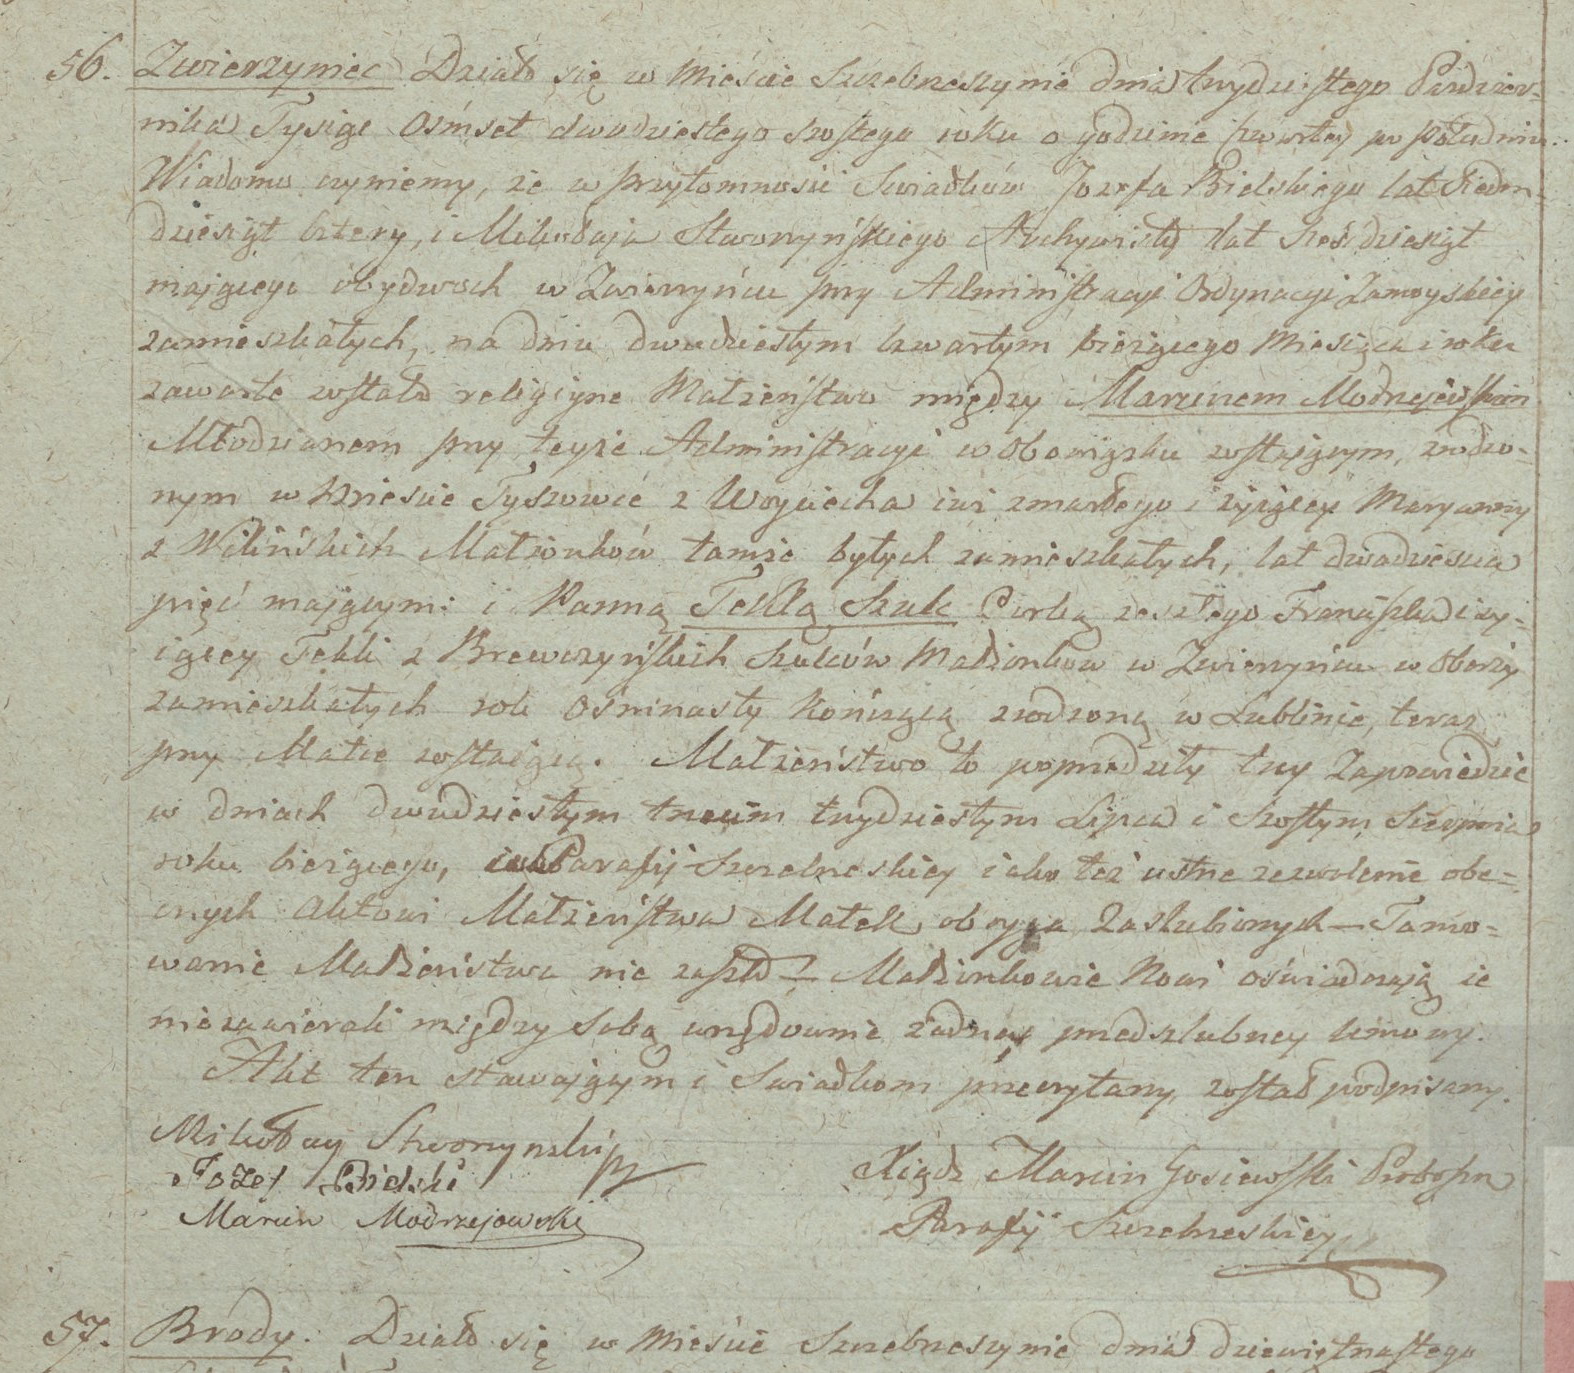 56. Zwierzyniec Działo się w Mieście Szczebrzeszynie dnia trzydziestego Paździer-
nika Tysiąc Osmset dwudziestego szostego roku o godzinie czwartey po południu.
Wiadomo czyniemy, że w przytomności Swiadków Jozefa Bielskiego lat Siedm-
dziesiąt Cztery, i Mikołaja Stworzyńskiego Archywisty lat sześdziesiąt
maiącego obydwoch w Zwierzyńcu przy Administracyi Ordynacyi Zamoyskiey
zamieszkałych, na dniu dwudziestym czwartym bieżącego Miesiąca i roku
zawarte zostało religiyne Małżeństwo między Marcinem Modrzejewskim
Młodzianem przy teyże Administracyi w Obowiązku zostaiącym, zrodzo-
nym w Mieście Tyszowcé z Woyciecha iuż zmarłego i żyiącey Maryanny
z Wilińskich Małżonków tamże byłych zamieszkałych, lat dwadzieścia
pięć maiącym; i Panną Teklą Szulc Corką zeszłego Franciszka i ży-
iącey Tekli z Brewczyńskich Szulców Małżonkow w Zwierzyńcu w Oberży
zamieszkałych rok Ośmnasty Kończącą zrodzoną w Lublinie, teraz
przy Matce zostaiącą. Małżeństwo to poprzedziły trzy Zapowiedzie
w dniach dwudziestym trzecim trzydziestym Lipca i Szostym Sierpnia
roku bieżącego, Parafij Szczebrzeskiey iako też ustne zezwolenie obe-
cnych Aktowi Małżeństwa Matek obojga Zaslubionych — Tamo-
wanie Małżeństwa nie zaszło — Małżonkowie Nowi oświadczaią że
niezawierali między Sobą urzędownie żadney przedszlubney Umowy.
Akt ten stawaiącym i Swiadkom przeczytany, został podpisany.
Mikołay Stworzynski
Jozef Bielski
Marcin Modrzejewski
Xiądz Marcin Gosiewski Proboszcz
Parafij Szczebrzeskiey
57. Brody. Działo się w Mieście Szczebrzeszynie dnia dziewiętnastego